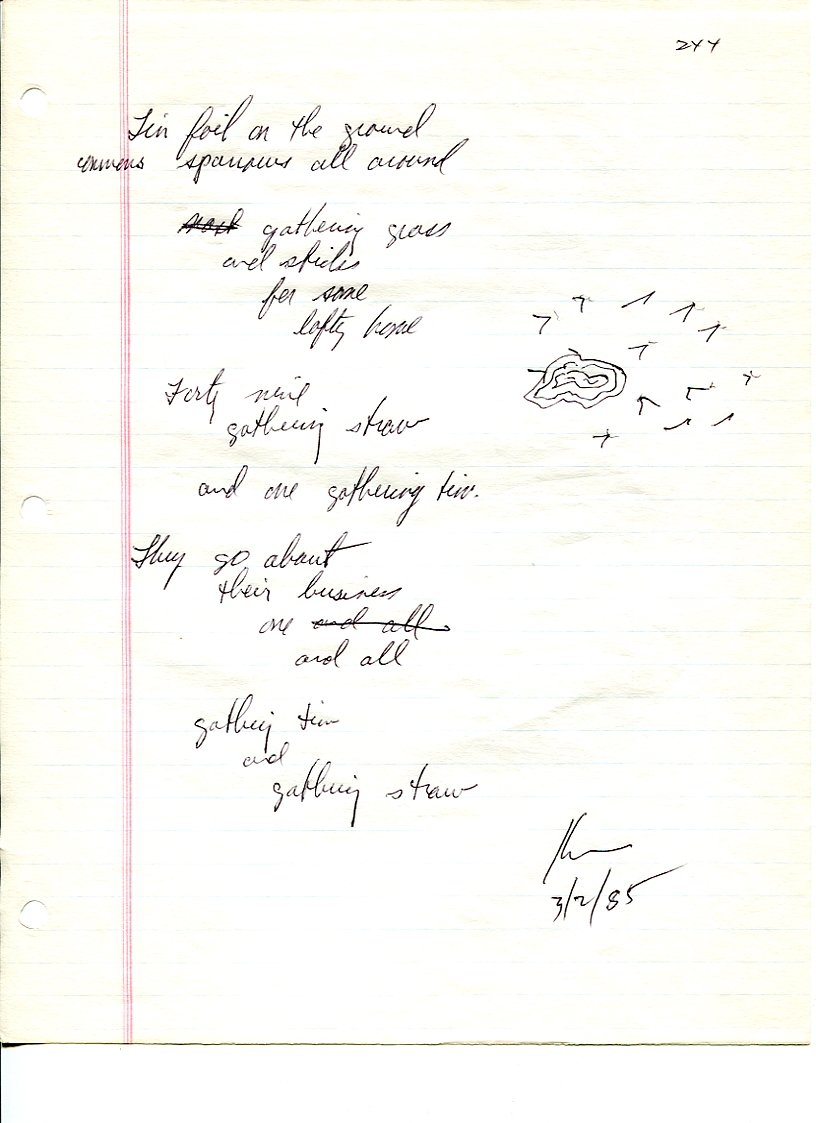 244
Tin foil on the ground
sparrows all around
gathering grass
and sticks
for some
lofty home
Forty nine
gathering straw
and one gathering tin.
They go about
their business
one and all
and all
gatherig tin
and
gathering straw
3/2/85